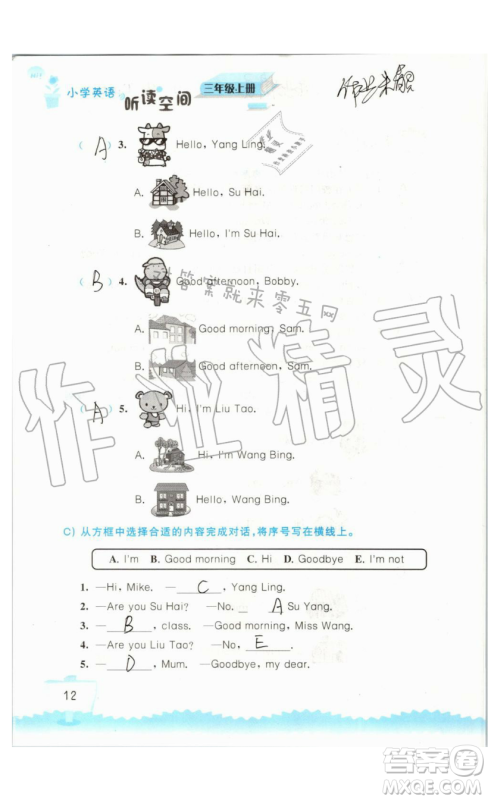 小学英语
听读空间
三年级上册
作业来赢
( A ) 3. Hello, Yang Ling.
A. Hello, Su Hai.
B. Hello, I'm Su Hai.
( B ) 4. Good afternoon, Bobby.
A. Good morning, Sam.
B. Good afternoon, Sam.
( A ) 5. Hi, I'm Liu Tao.
A. Hi, I'm Wang Bing.
B. Hello, Wang Bing.
查答案就来零五网
作业精灵
C) 从方框中选择合适的内容完成对话,将序号写在横线上。
A. I'm B. Good morning C. Hi D. Goodbye E. I'm not
1. —Hi, Mike. —C, Yang Ling.
2. —Are you Su Hai? —No. A Su Yang.
3. —B, class. —Good morning, Miss Wang.
4. —Are you Liu Tao? —No, E.
5. —D, Mum. —Goodbye, my dear.
12
答案圈
MXQE.COM